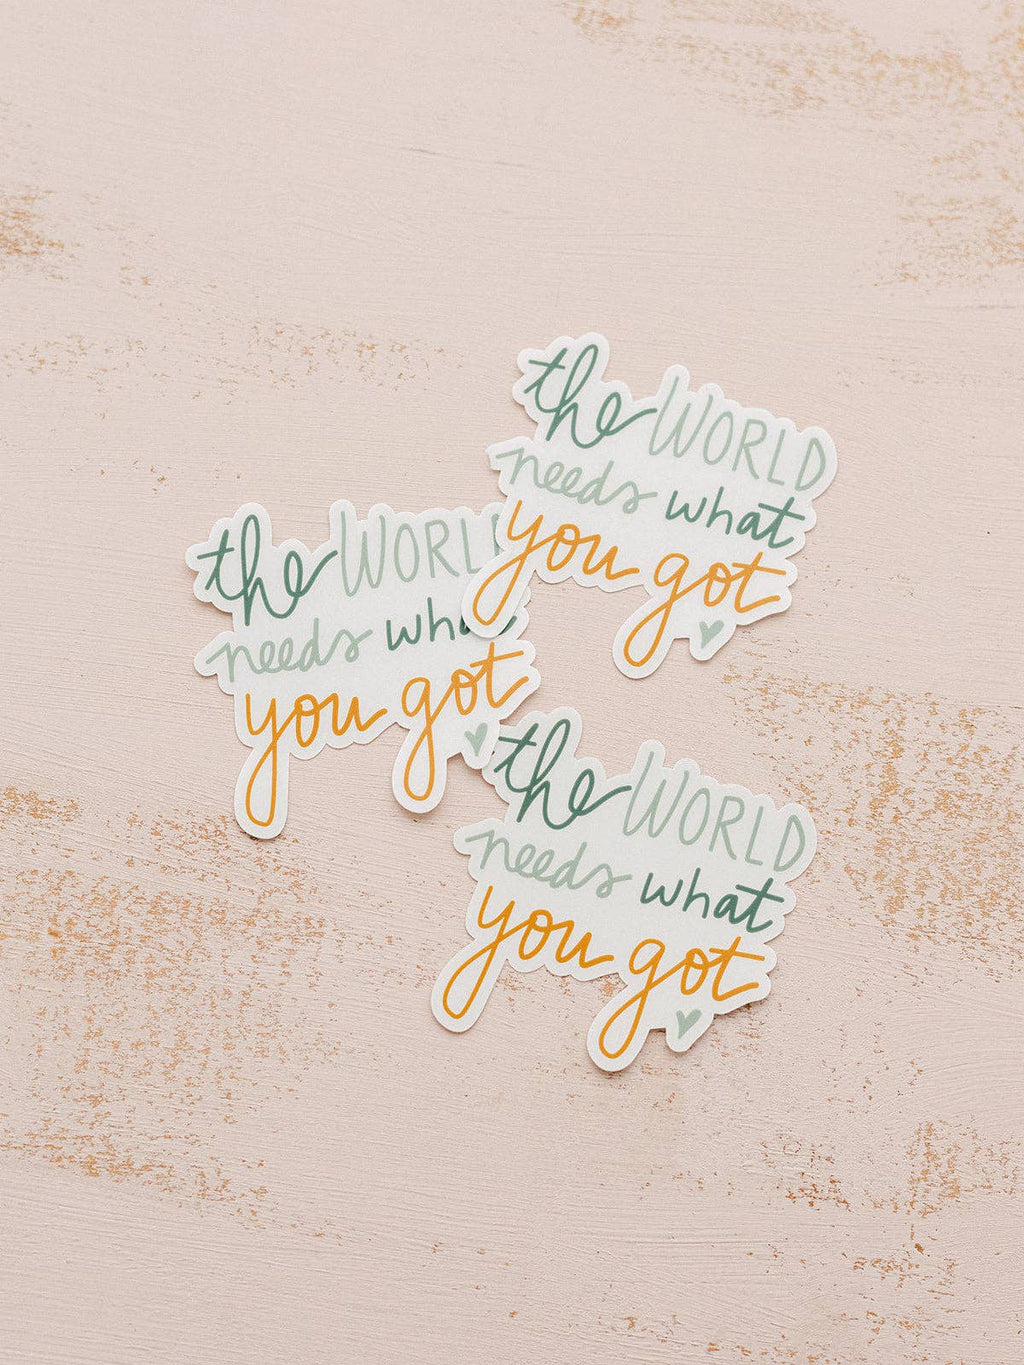 the WORLD
needs what
you got
the WORL
needs wha
you got
the WORLD
needs what
you got